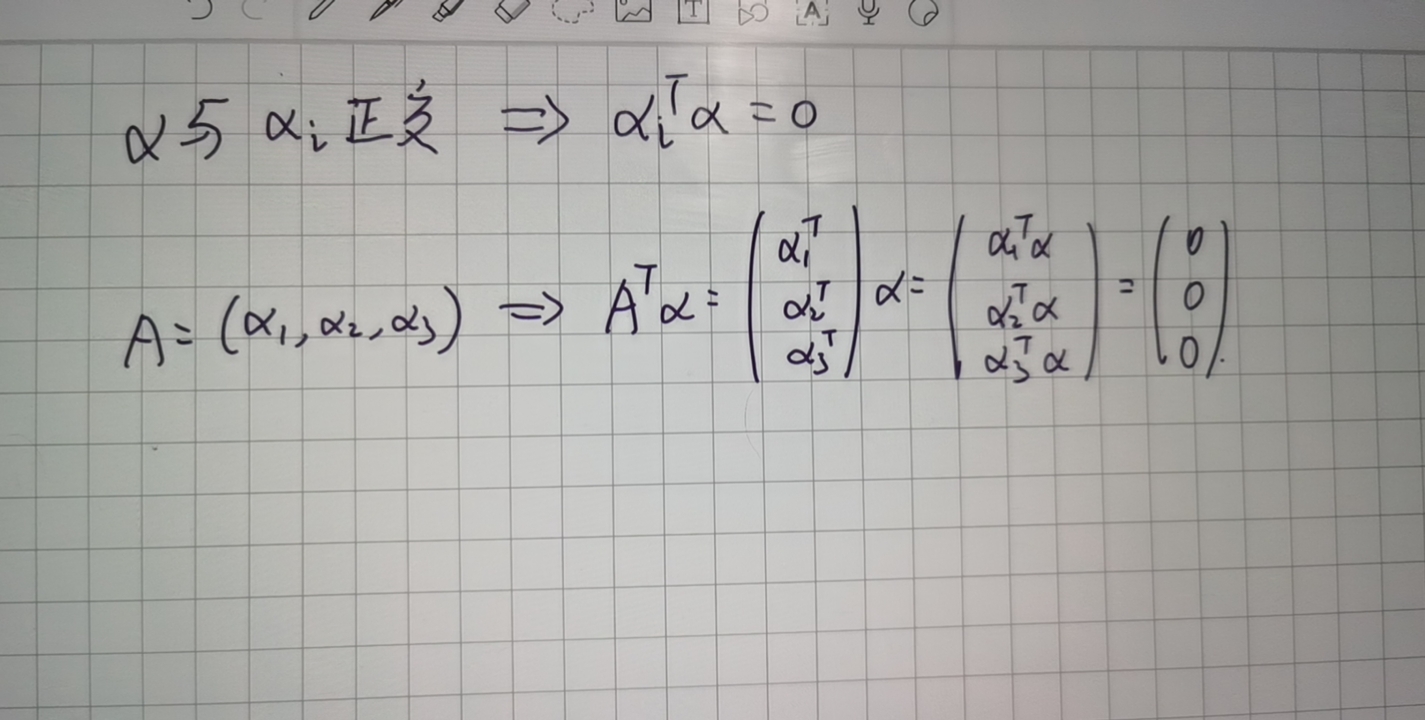 α与 αᵢ 正交 ⇒ αᵢᵀα = 0
A = (α₁, α₂, α₃) ⇒ Aᵀα = (α₁ᵀ α₂ᵀ α₃ᵀ) α = (α₁ᵀα α₂ᵀα α₃ᵀα) = (0 0 0).